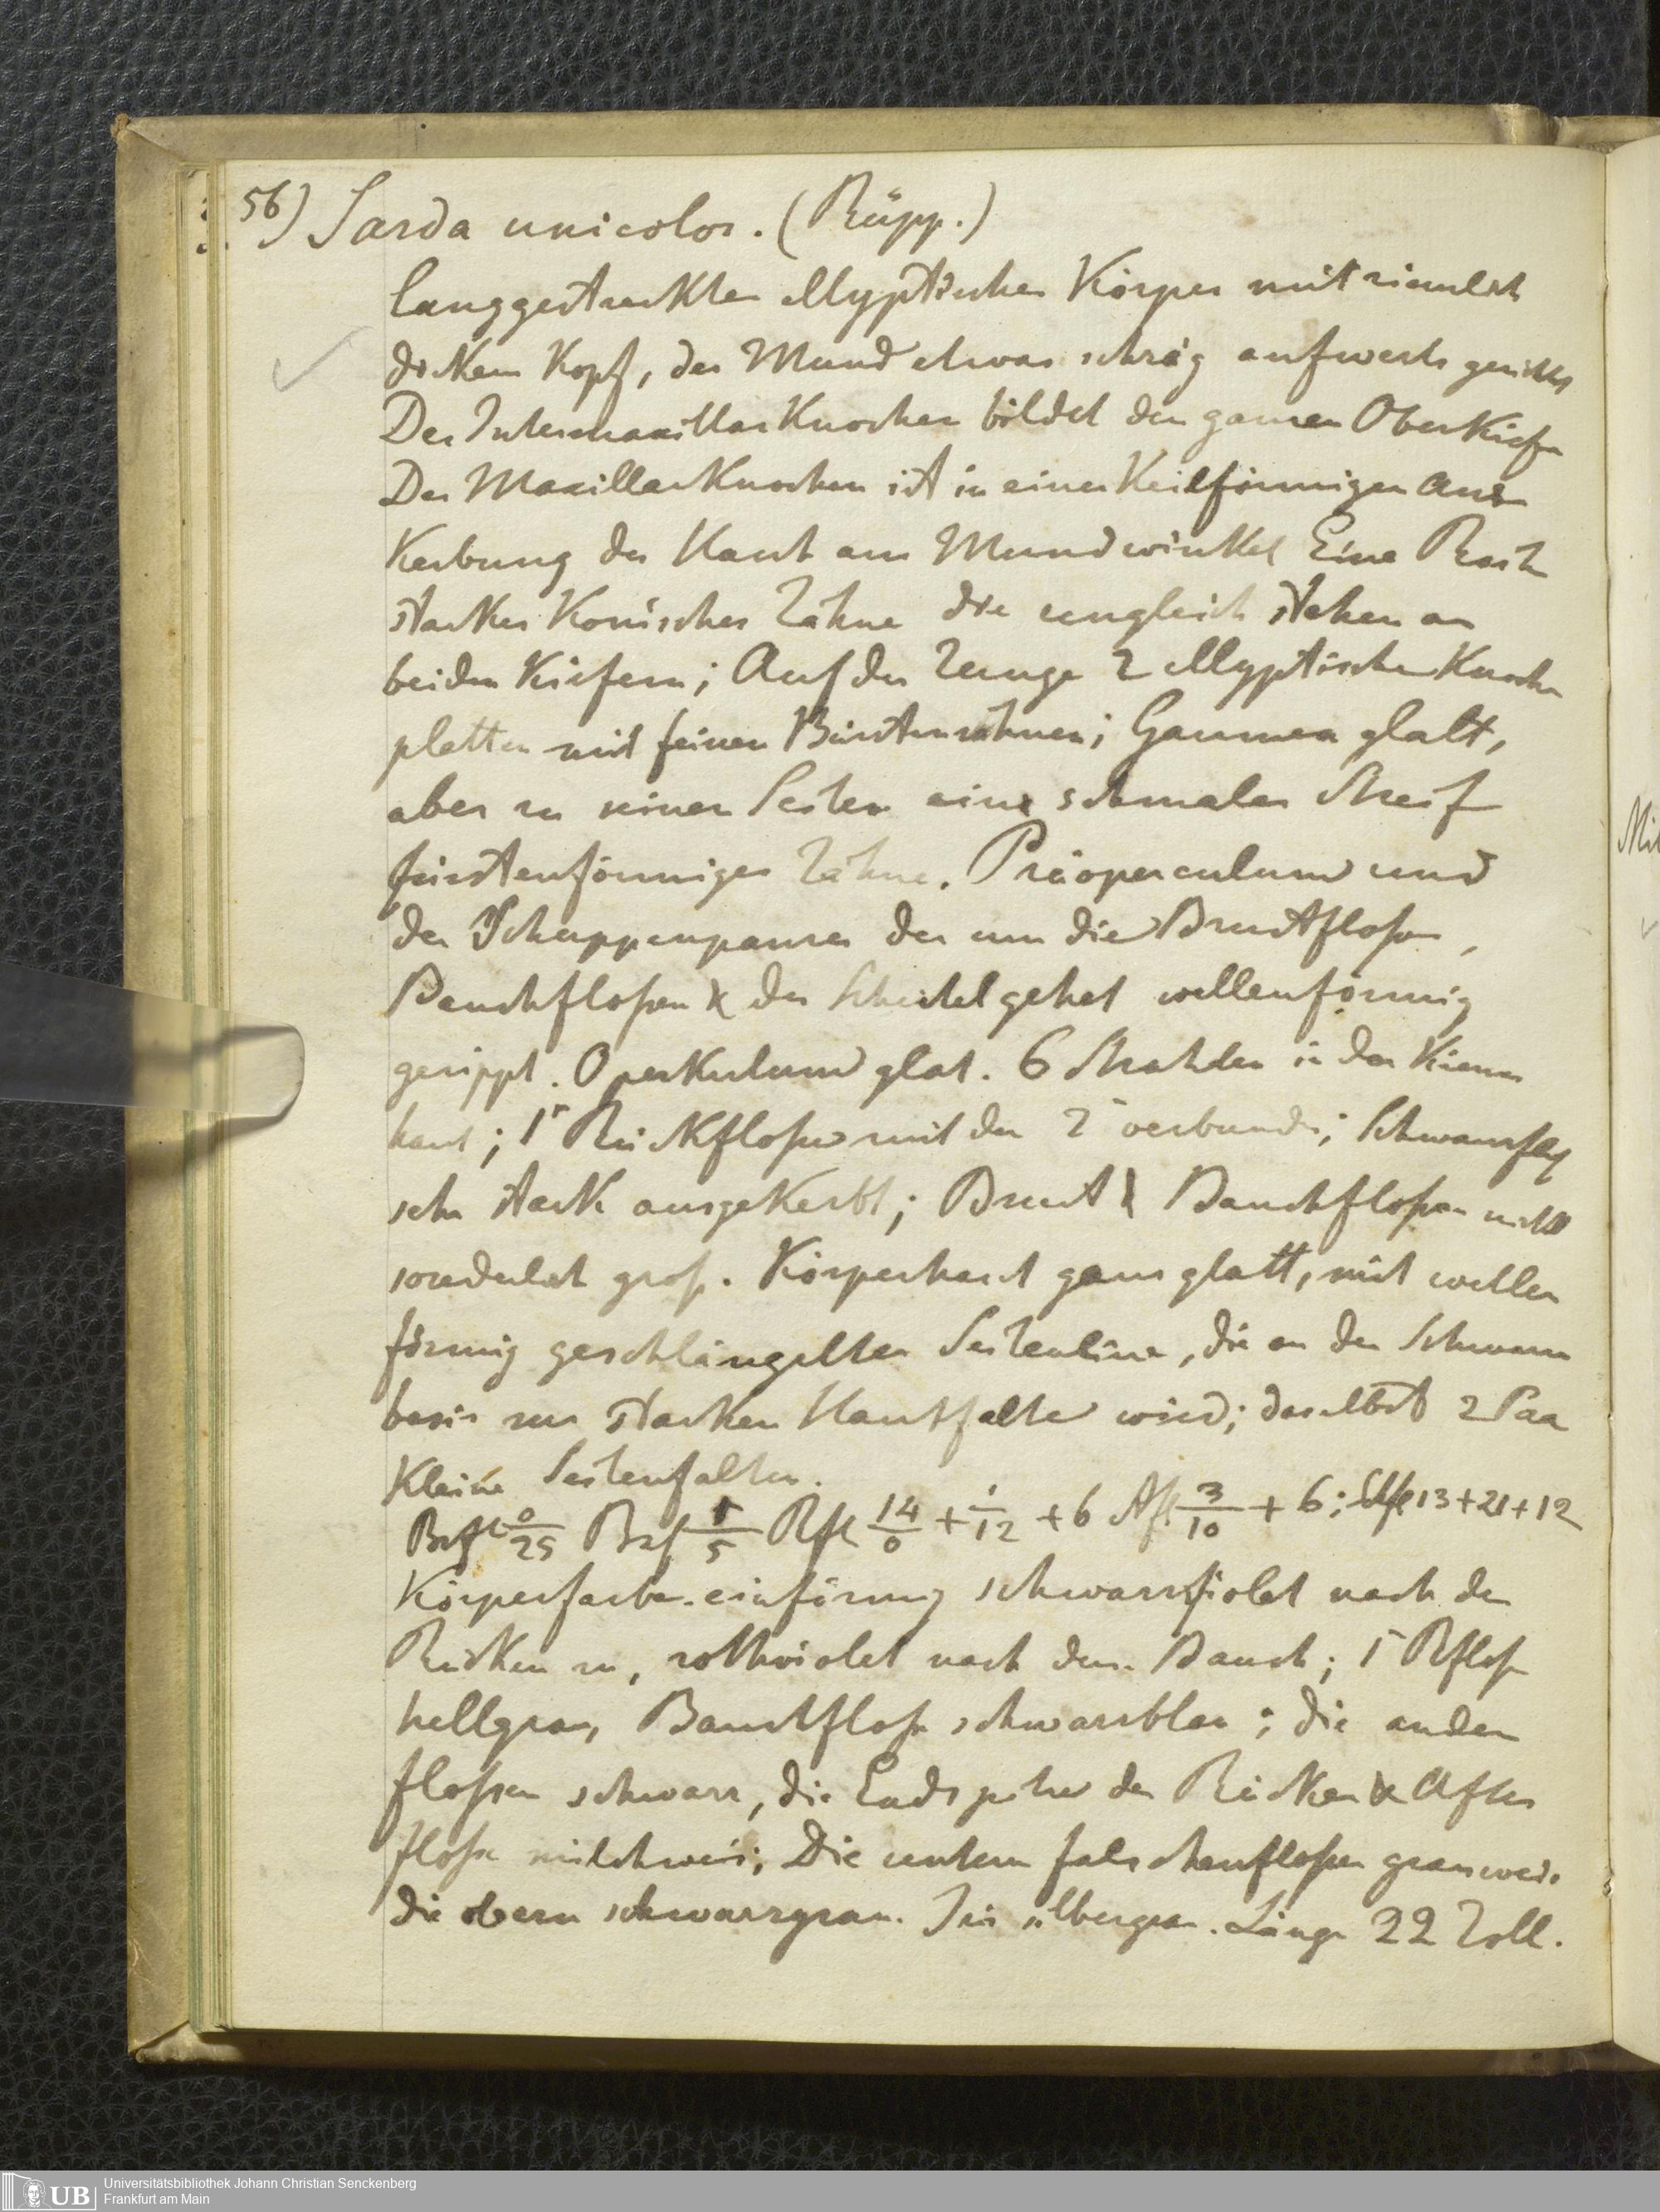 56) Sarda unicolor. (Rüpp.)
langgestreckter ellyptischer Körper mit ziemlich
dickem Kopf, der Mund etwas schräg aufwerts gericht
Der Intermaxillar Knochen bildet den ganzen OberKiefer
Der MaxillarKnochen ist in einer Keilförmigen Aus
Kerbung der Haut am Mundwinkel Eine Reih
starker Konischer Zähne die ungleich stehen an
beiden Kiefern; Auf der Zunge 2 ellyptische Knochen
platten mit feinen Bürstenzähnen; Gaumen glatt,
aber zu seinen Seiten ein schmaler Streif
bürstenförmiger Zähne. Präoperculum und
der Schuppenpanzer der um die Brustfloßen,
Bauchfloßen & den Scheitel gehet wellenförmig
gerippt. Operkulum glat. 6 Strahlen in der Kiemen
haut; 1r Rückfloße mit der 2 verbunden; Schwanzfl
sehr stark ausgeKerbt; Brust & Bauchfloßen nicht
sonderlich groß. Körperhaut ganz glatt, mit wellen
förmig geschlängelter Seitenlinie, die an der Schwanz
basis zur starken Hautfalte wird; daselbst 2 Paar
Kleine Seitenfalten.
Brfl 0/25 Bzf 1/5 Rfl 14/0 + 1/12 + 6 Afl 3/10 + 6; Schfl 13+21+12
Körperfarbe einförmig schwarzfiolet nach den
Rücken zu, rothviolet nach dem Bauch; 1 Rfloß
hellgrau, Bauchfloße schwarzblau; die anden
floßen schwarz, die Endspitze der Rücken & After
floße milchweis; Die untern falschenfloßen grauweis
die obern schwarzgrau. Iris silbergrau. Länge 22 Zoll.
Mit
Universitätsbibliothek Johann Christian Senckenberg
Frankfurt am Main
UB